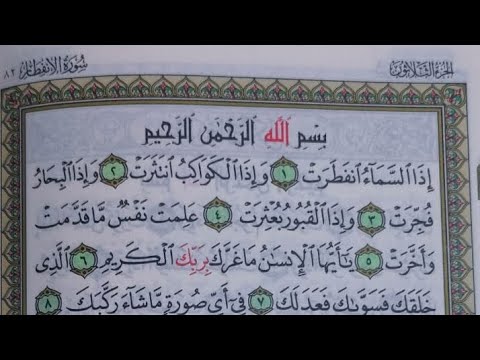 الجزء الثلاثون
سورة الانفطار ٨٢
بِسْمِ ٱللَّهِ ٱلرَّحْمَٰنِ ٱلرَّحِيمِ
إِذَا ٱلسَّمَآءُ ٱنفَطَرَتْ ١ وَإِذَا ٱلْكَوَاكِبُ ٱنتَثَرَتْ ٢ وَإِذَا ٱلْبِحَارُ
فُجِّرَتْ ٣ وَإِذَا ٱلْقُبُورُ بُعْثِرَتْ ٤ عَلِمَتْ نَفْسٌ مَّا قَدَّمَتْ
وَأَخَّرَتْ ٥ يَٰٓأَيُّهَا ٱلْإِنسَٰنُ مَا غَرَّكَ بِرَبِّكَ ٱلْكَرِيمِ ٦ ٱلَّذِى
خَلَقَكَ فَسَوَّىٰكَ فَعَدَلَكَ ٧ فِىٓ أَىِّ صُورَةٍ مَّا شَآءَ رَكَّبَكَ ٨